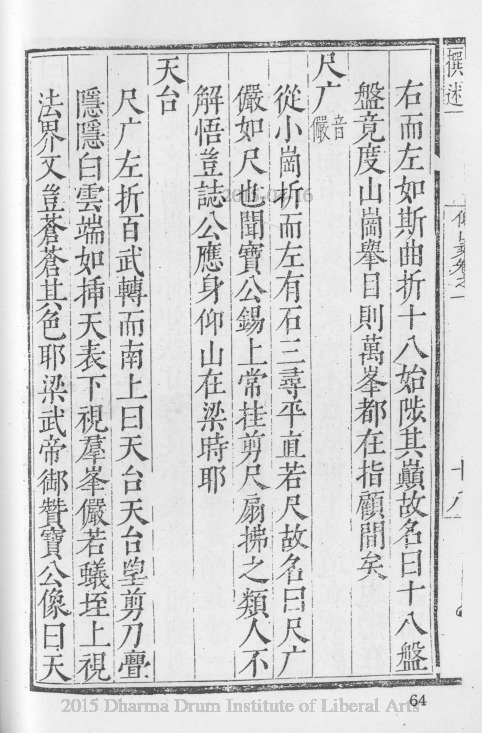 撰述
右而左如斯曲折十八始陟其巔故名曰十八盤
盤竟度山崗舉目則萬峯都在指顧間矣
尺广 音儼
從小崗折而左有石三尋平直若尺故名曰尺广
儼如尺也聞寶公錫上常挂剪尺扇拂之類人不
解悟豈誌公應身仰山在梁時耶
天台
尺广左折百武轉而南上曰天台天台望剪刀疊
隱隱白雲端如揷天表下視羣峯儼若蟻垤上視
法界又豈蒼蒼其色耶梁武帝御贊寶公像曰天
64
2015 Dharma Drum Institute of Liberal Arts